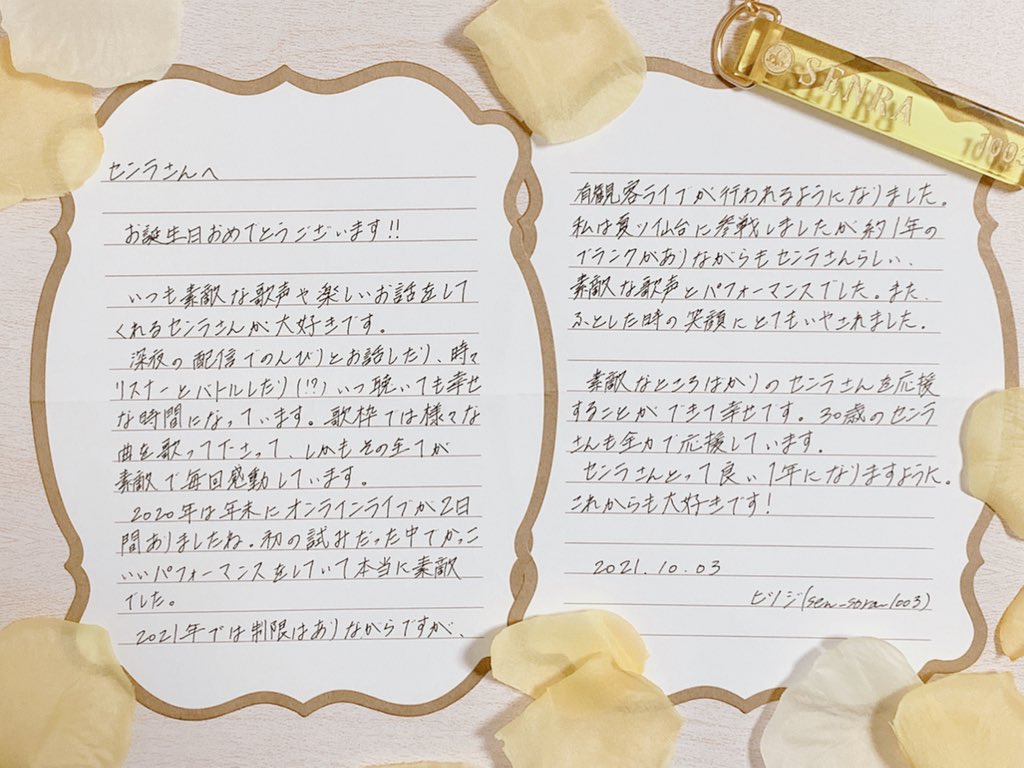 センラさんへ
お誕生日おめでとうございます!!
いつも素敵な歌声や楽しいお話をして
くれるセンラさんが大好きです。
深夜の配信でのんびりとお話したり、時々
リスナーとバトルしたり(!?)いつ聴いても幸せ
な時間になっています。歌枠では様々な
曲を歌って下さって、しかもその全てが
素敵で毎回感動しています。
2020年は年末にオンラインライブが2日
間ありましたね。初の試みだった中でかっこ
いいパフォーマンスをしていて本当に素敵
でした。
2021年では制限はありながらですが、
有観客ライブが行われるようになりました。
私は夏ツ仙台に参戦しましたが約1年の
ブランクがありながらもセンラさんらしい、
素敵な歌声とパフォーマンスでした。また、
ふとした時の笑顔にとてもいやされました。
素敵なところばかりのセンラさんを応援
することができて幸せです。30歳のセンラ
さんも全力で応援しています。
センラさんとって良い1年になりますように。
これからも大好きです!
2021.10.03
ビソジ(sen_sora_1003)
SENRA
100